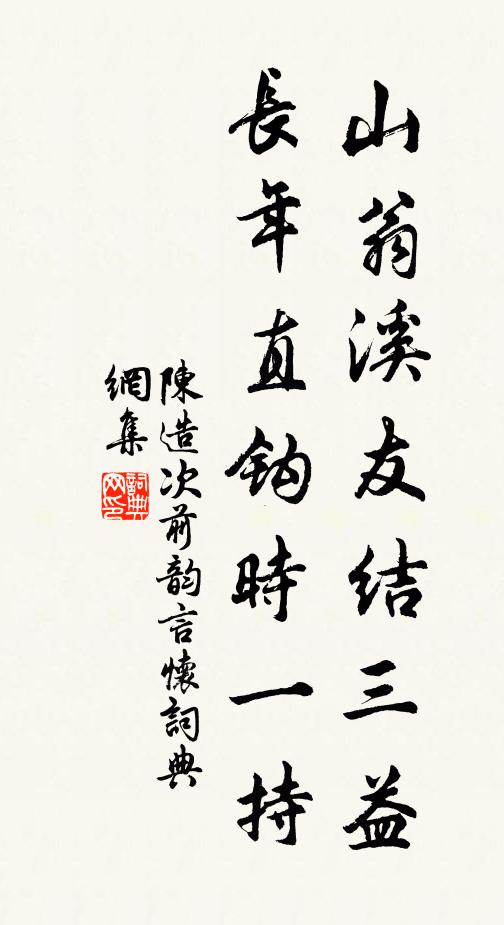 山翁溪友结三益
長年直钩時一持
陳造次前韵言懷詞典
網集
詞典網印